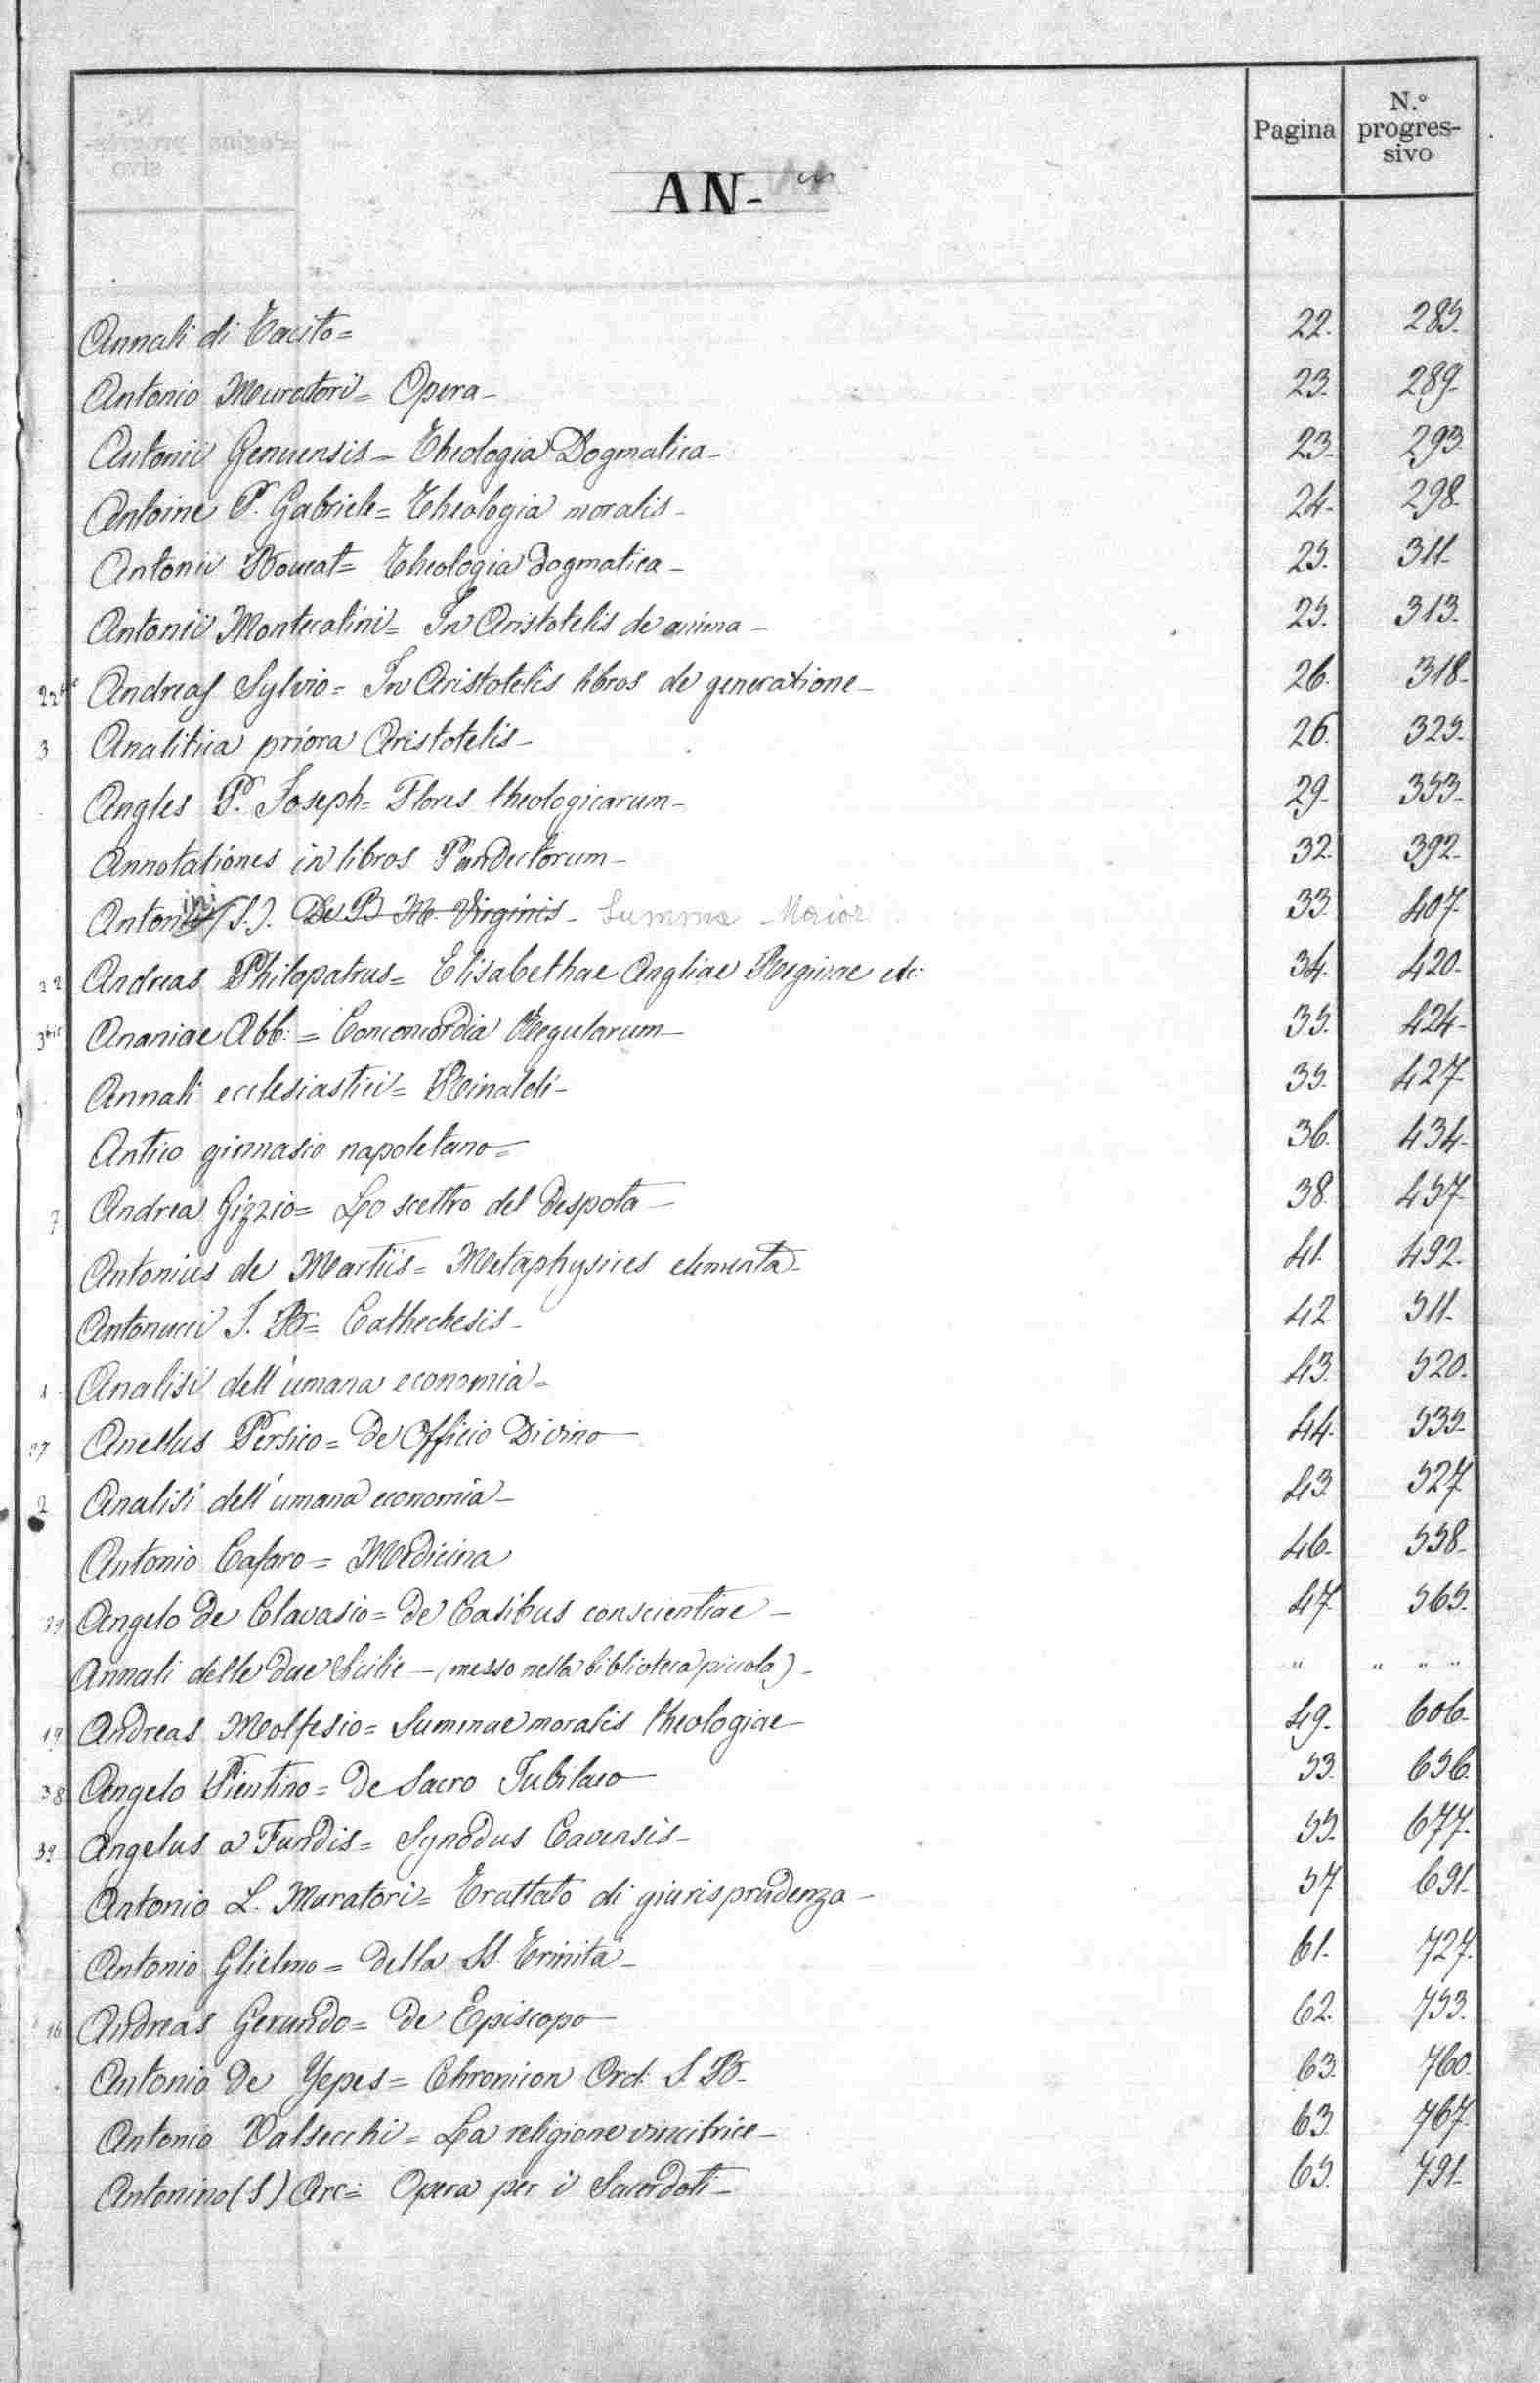 Pagina N.º progres-sivo
AN-
Annali di Tacito= 22. 285.
Antonio Muratori= Opera- 23. 289.
Antonii Genuensis- Theologia Dogmatica- 23. 293
Antoine P. Gabriele= Theologia moralis- 24. 298.
Antonii Boucat= Theologia dogmatica- 25. 311.
Antonii Montecatini= In Aristotelis de anima- 25. 313.
Andreas Sylvio= In Aristotelis libros de generatione- 26. 318.
3 Analitica priora Aristotelis- 26. 325.
Angles P. Joseph= Flores theologicarum- 29. 353.
Annotationes in libros Pandectorum- 32. 392.
Antonini (S.). De B. M. Virginis- Summa Maior 33. 407.
22 Andreas Philopatrus= Elisabethae Angliae Reginae etc: 34. 420.
3bis Ananiae Abb:= Conconcordia Regularum- 35. 424.
Annali ecclesiastici= Rinaldi- 35. 427.
Antico ginnasio napoletano= 36. 434.
7 Andrea Gizzio= Lo scettro del Despota- 38. 457.
Antonius de Martiis= Metaphysices elementa- 41. 492.
Antonucci J. B= Cathechesis- 42. 511.
1 Analisi dell'umana economia= 43. 520.
37 Anellus Persico= De Officio Divino- 44. 535.
2 Analisi dell'umana economia- 43. 527.
Antonio Cafaro= Medicina 46. 558.
Angelo De Clavasio= De Casibus conscientiae- 47. 565.
Annali delle due Sicilie-(messo nella biblioteca piccola)- " " " "
19 Andreas Molfesio= Summae moralis theologiae- 49. 606.
38 Angelo Pientino= De Sacro Jubilaeo- 53. 656.
39 Angelus a Fundis= Synodus Cavensis- 55. 677.
Antonio L. Muratori= Trattato di giurisprudenza- 57. 691.
Antonio Glielmo= Della SS. Trinità- 61. 727.
16 Andreas Gerundo= De Episcopo- 62. 753.
Antonio De Yepes= Chronicon Ord. S. B- 63. 760.
Antonio Valsecchi= La religione vincitrice- 63. 767.
Antonino (S) Arc:= Opera per i Sacerdoti- 65. 791.